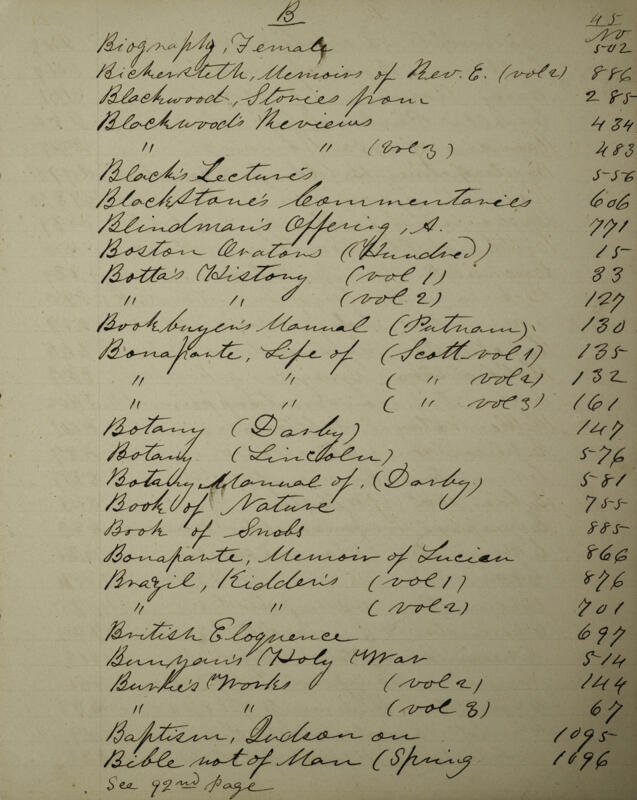 B 45
No
Biography, Female 502
Bickersteth, Memoirs of Rev. E. (vol 2) 886
Blackwood, Stories from 285
Blackwood's Reviews 434
" " (vol 3) 483
Black's Lectures 556
Blackstone's Commentaries 606
Blindman's Offering, A. 771
Boston Orators (Hundred) 15
Botta's History (vol 1) 33
" " (vol 2) 127
Bookbuyer's Manual (Putnam) 130
Bonaparte, Life of (Scott vol 1) 135
" " ( " vol 2) 132
" " ( " vol 3) 161
Botany (Darby) 147
Botany (Lincoln) 576
Botany, Manual of, (Darby) 581
Book of Nature 755
Book of Snobs 885
Bonaparte, Memoir of Lucien 866
Brazil, Kidder's (vol 1) 876
" " (vol 2) 701
British Eloquence 697
Bunyan's Holy War 514
Burke's Works (vol 2) 144
" " (vol 3) 67
Baptism, Judson on 1095
Bible not of Man (Spring 1096
See 92nd Page